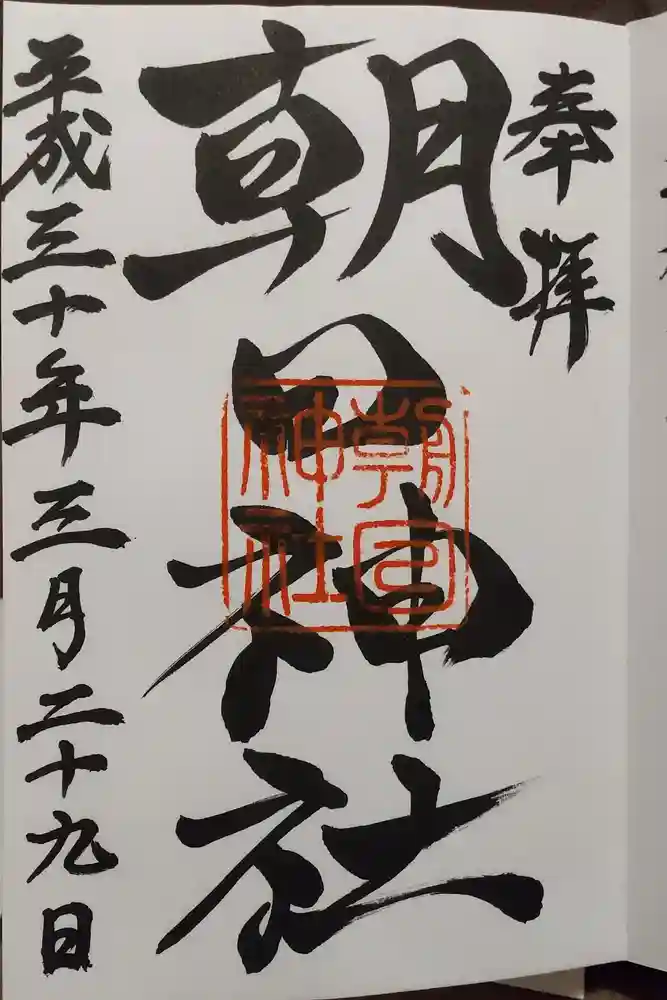 奉拝
朝日神社
朝日神社
平成三十年三月二十九日